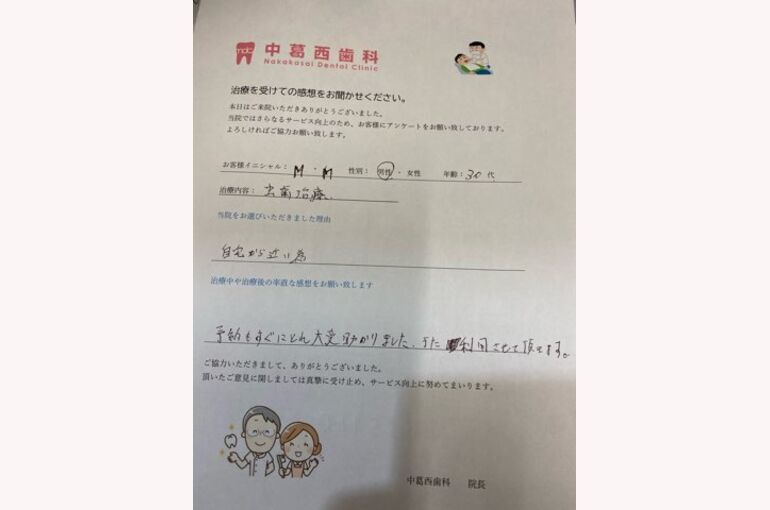 ndc 中葛西歯科
Nakakasai Dental Clinic
治療を受けての感想をお聞かせください。
本日はご来院いただきありがとうございました。
当院ではさらなるサービス向上のため、お客様にアンケートをお願い致しております。
よろしければご協力お願い致します。
お客様イニシャル: M ・ M 性別: 男性 ・ 女性 年齢: 30 代
治療内容: 虫歯治療.
当院をお選びいただきました理由
自宅から近い為
治療中や治療後の率直な感想をお願い致します
予約もすぐにとれ大変助かりました、また利用させて頂きます。
ご協力いただきまして、ありがとうございました。
頂いたご意見に関しましては真摯に受け止め、サービス向上に努めてまいります。
中葛西歯科 院長